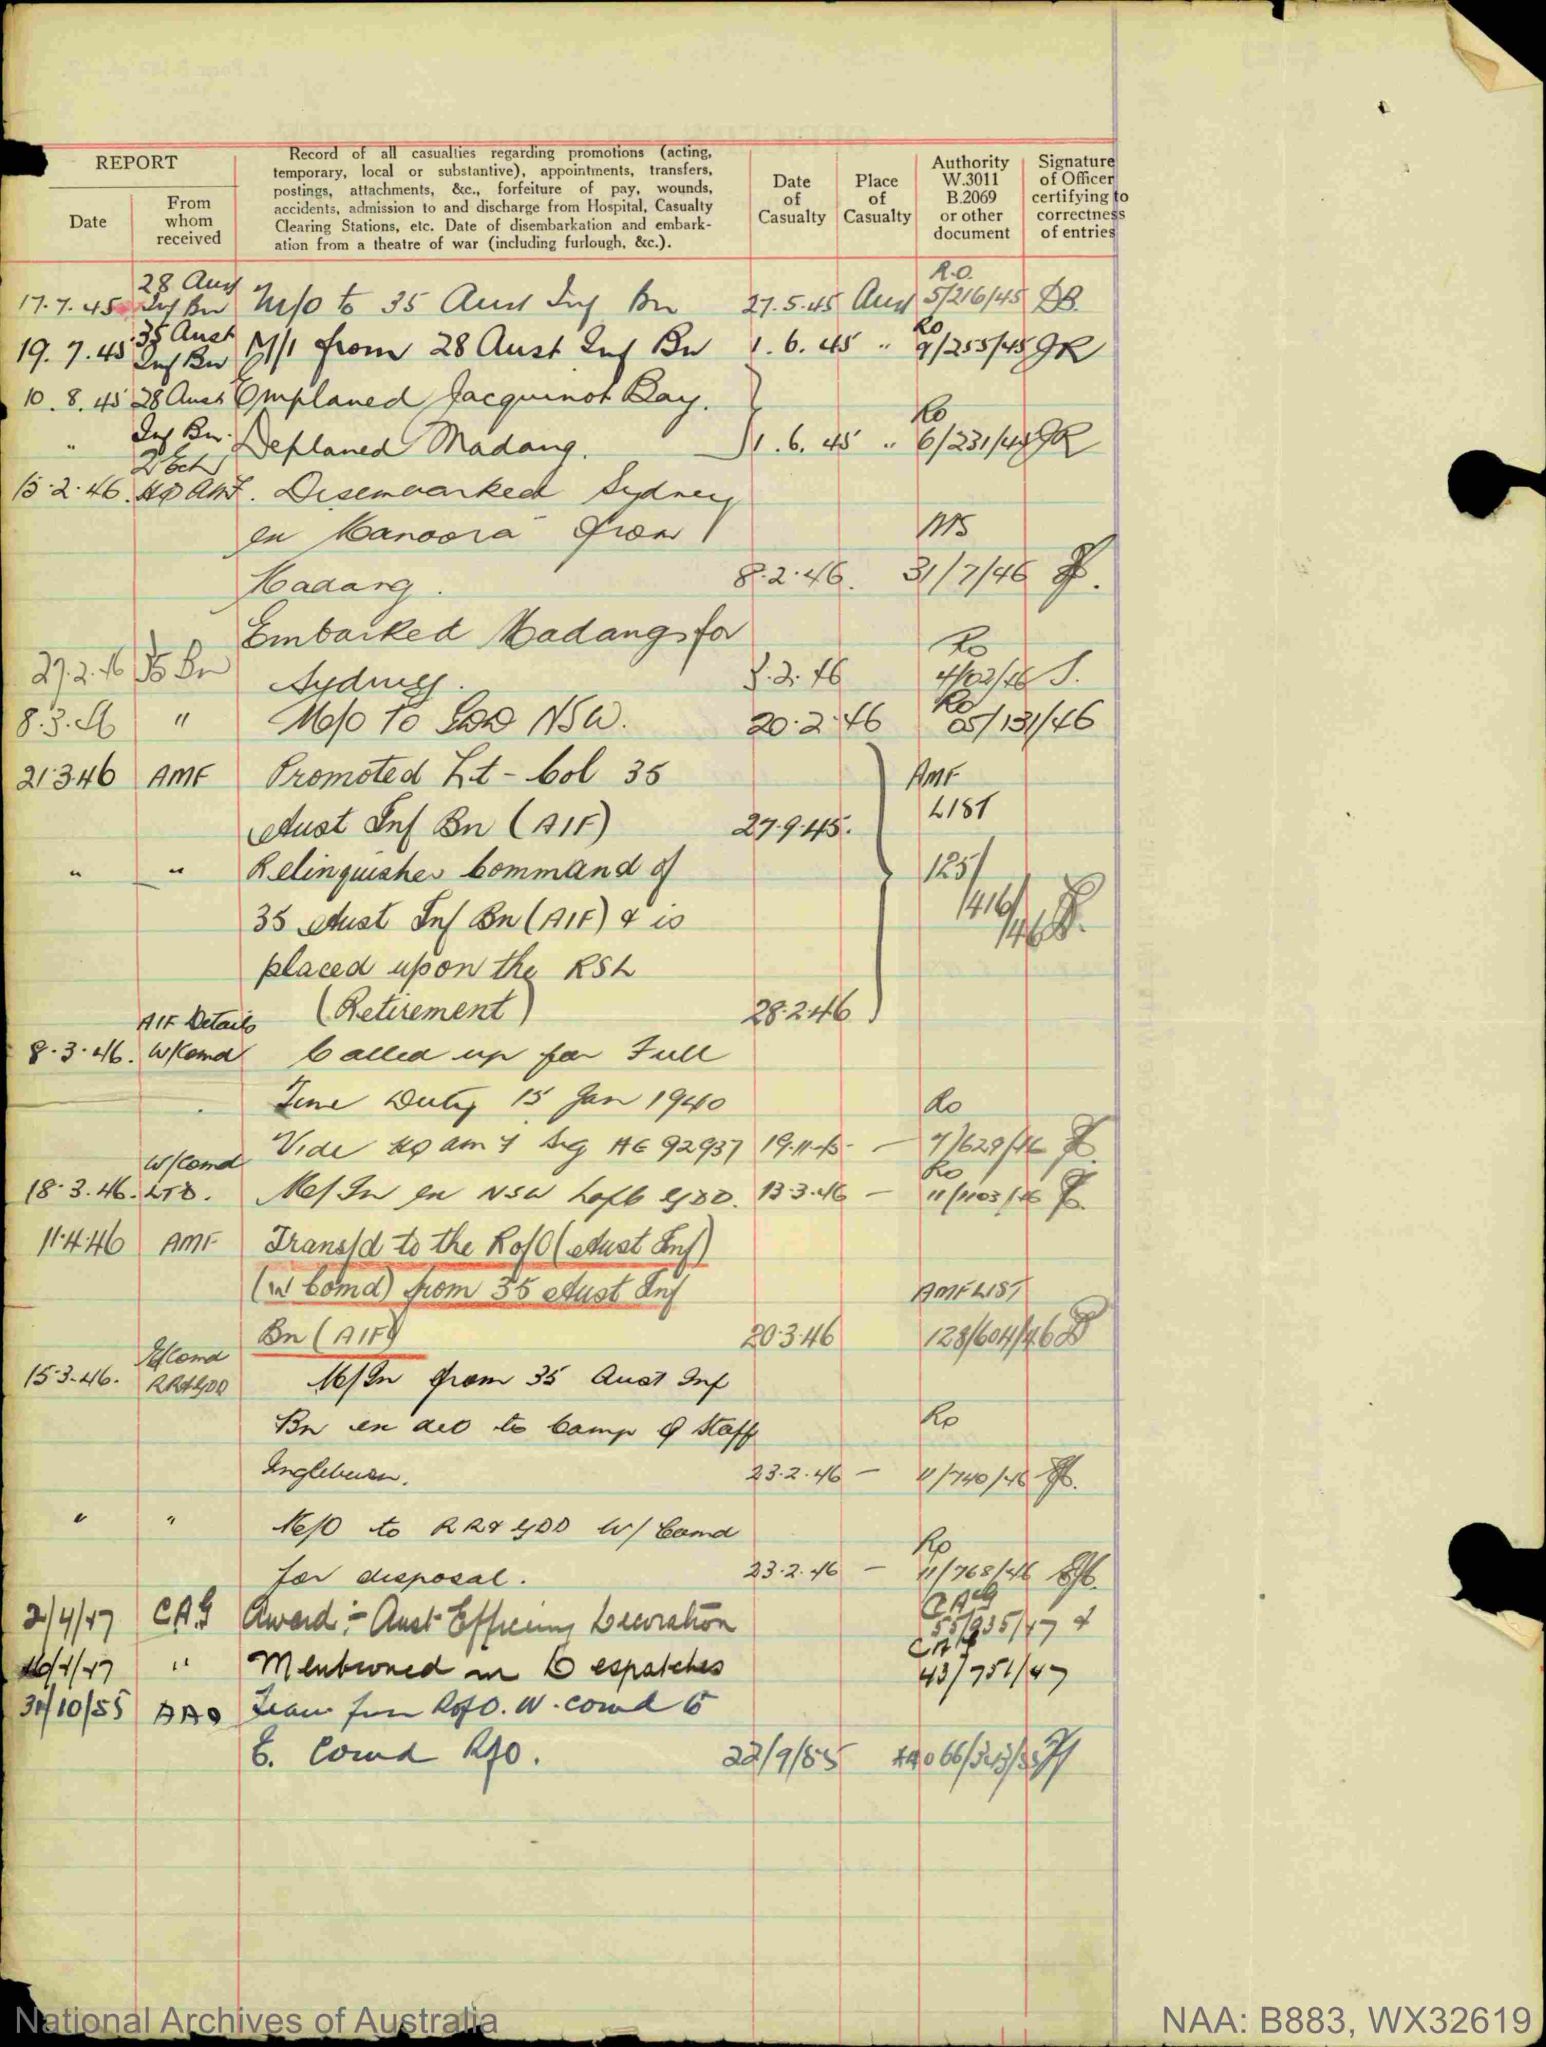 REPORT
Date
From
whom
received
Record of all casualties regarding promotions (acting,
temporary, local or substantive), appointments, transfers,
postings, attachments, &c., forfeiture of pay, wounds,
accidents, admission to and discharge from Hospital, Casualty
Clearing Stations, etc. Date of disembarkation and embark-
ation from a theatre of war (including furlough, &c.).
Date
of
Casualty
Place
of
Casualty
Authority
W.3011
B.2069
or other
document
Signature
of Officer
certifying to
correctness
of entries
28 Aust R.O.
17.7.45 Inf Bn M/O to 35 Aust Inf Bn 27.5.45 Aust 5/216/45 DB.
35 Aust RO
19.7.45 Inf Bn M/I from 28 Aust Inf Bn 1.6.45 " 9/255/45 JR
10.8.45 28 Aust Emplaned Jacquinot Bay.
" Inf Bn. Deplaned Madang. 1.6.45 " RO 6/231/45 JR
2 Ech
15.2.46. HQ AMF. Disembarked Sydney
ex Manoora from MS
Madang. 8.2.46. 31/7/46
Embarked Madang for RO
27.2.46 35 Bn Sydney. 2.46 S.
8.3.46 " M/O to GDD NSW. 20.2.46 RO 05/131/46
21.3.46 AMF Promoted Lt-Col 35 AMF
Aust Inf Bn (AIF) 27.9.45. LIST
" " Relinquishes Command of 125/
35 Aust Inf Bn (AIF) & is 416/
placed upon the RSL /46
(Retirement) 28.2.46
AIF Details
8.3.46. W/Comd Called up for Full
Time Duty 15 Jan 1940 RO
Vide HQ AMF Sig AG 92937 19.11.45 - 7/629/46
W/Comd RO
18.3.46. LTD. M/In ex NSW GDD. 13.3.46 - 11/1103/46
11.4.46 AMF Transf'd to the RofO (Aust Inf)
(W Comd) from 35 Aust Inf AMF LIST
Bn (AIF) 20.3.46 128/604/46
E/Comd
15.3.46. RR&GDD M/In from 35 Aust Inf
Bn to Camp Staff RO
Ingleburn. 23.2.46 - 11/740/46
" " M/O to RR& GDD W/Comd RO
for disposal. 23.2.46 - 11/768/46
2/4/47 CAG Award:- Aust Efficiency Decoration CAG 55/935/47
/4/47 " Mentioned in Despatches CAG 43/751/47
31/10/55 AAO Trans from RofO. W. Comd to
E. Comd RofO. 22/9/55 AAO 66/343/55
National Archives of Australia
NAA: B883, WX32619